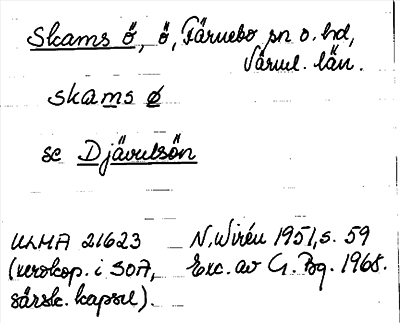 Skams ö, ö, Färnebo sn o. hd,
Värml. län.
skams ø
se Djävulsön
ULMA 21623 N. Wirén 1951, s. 59
(xerokop. i SOA, Exc. av G. Bg. 1968.
särsk. kapsel).